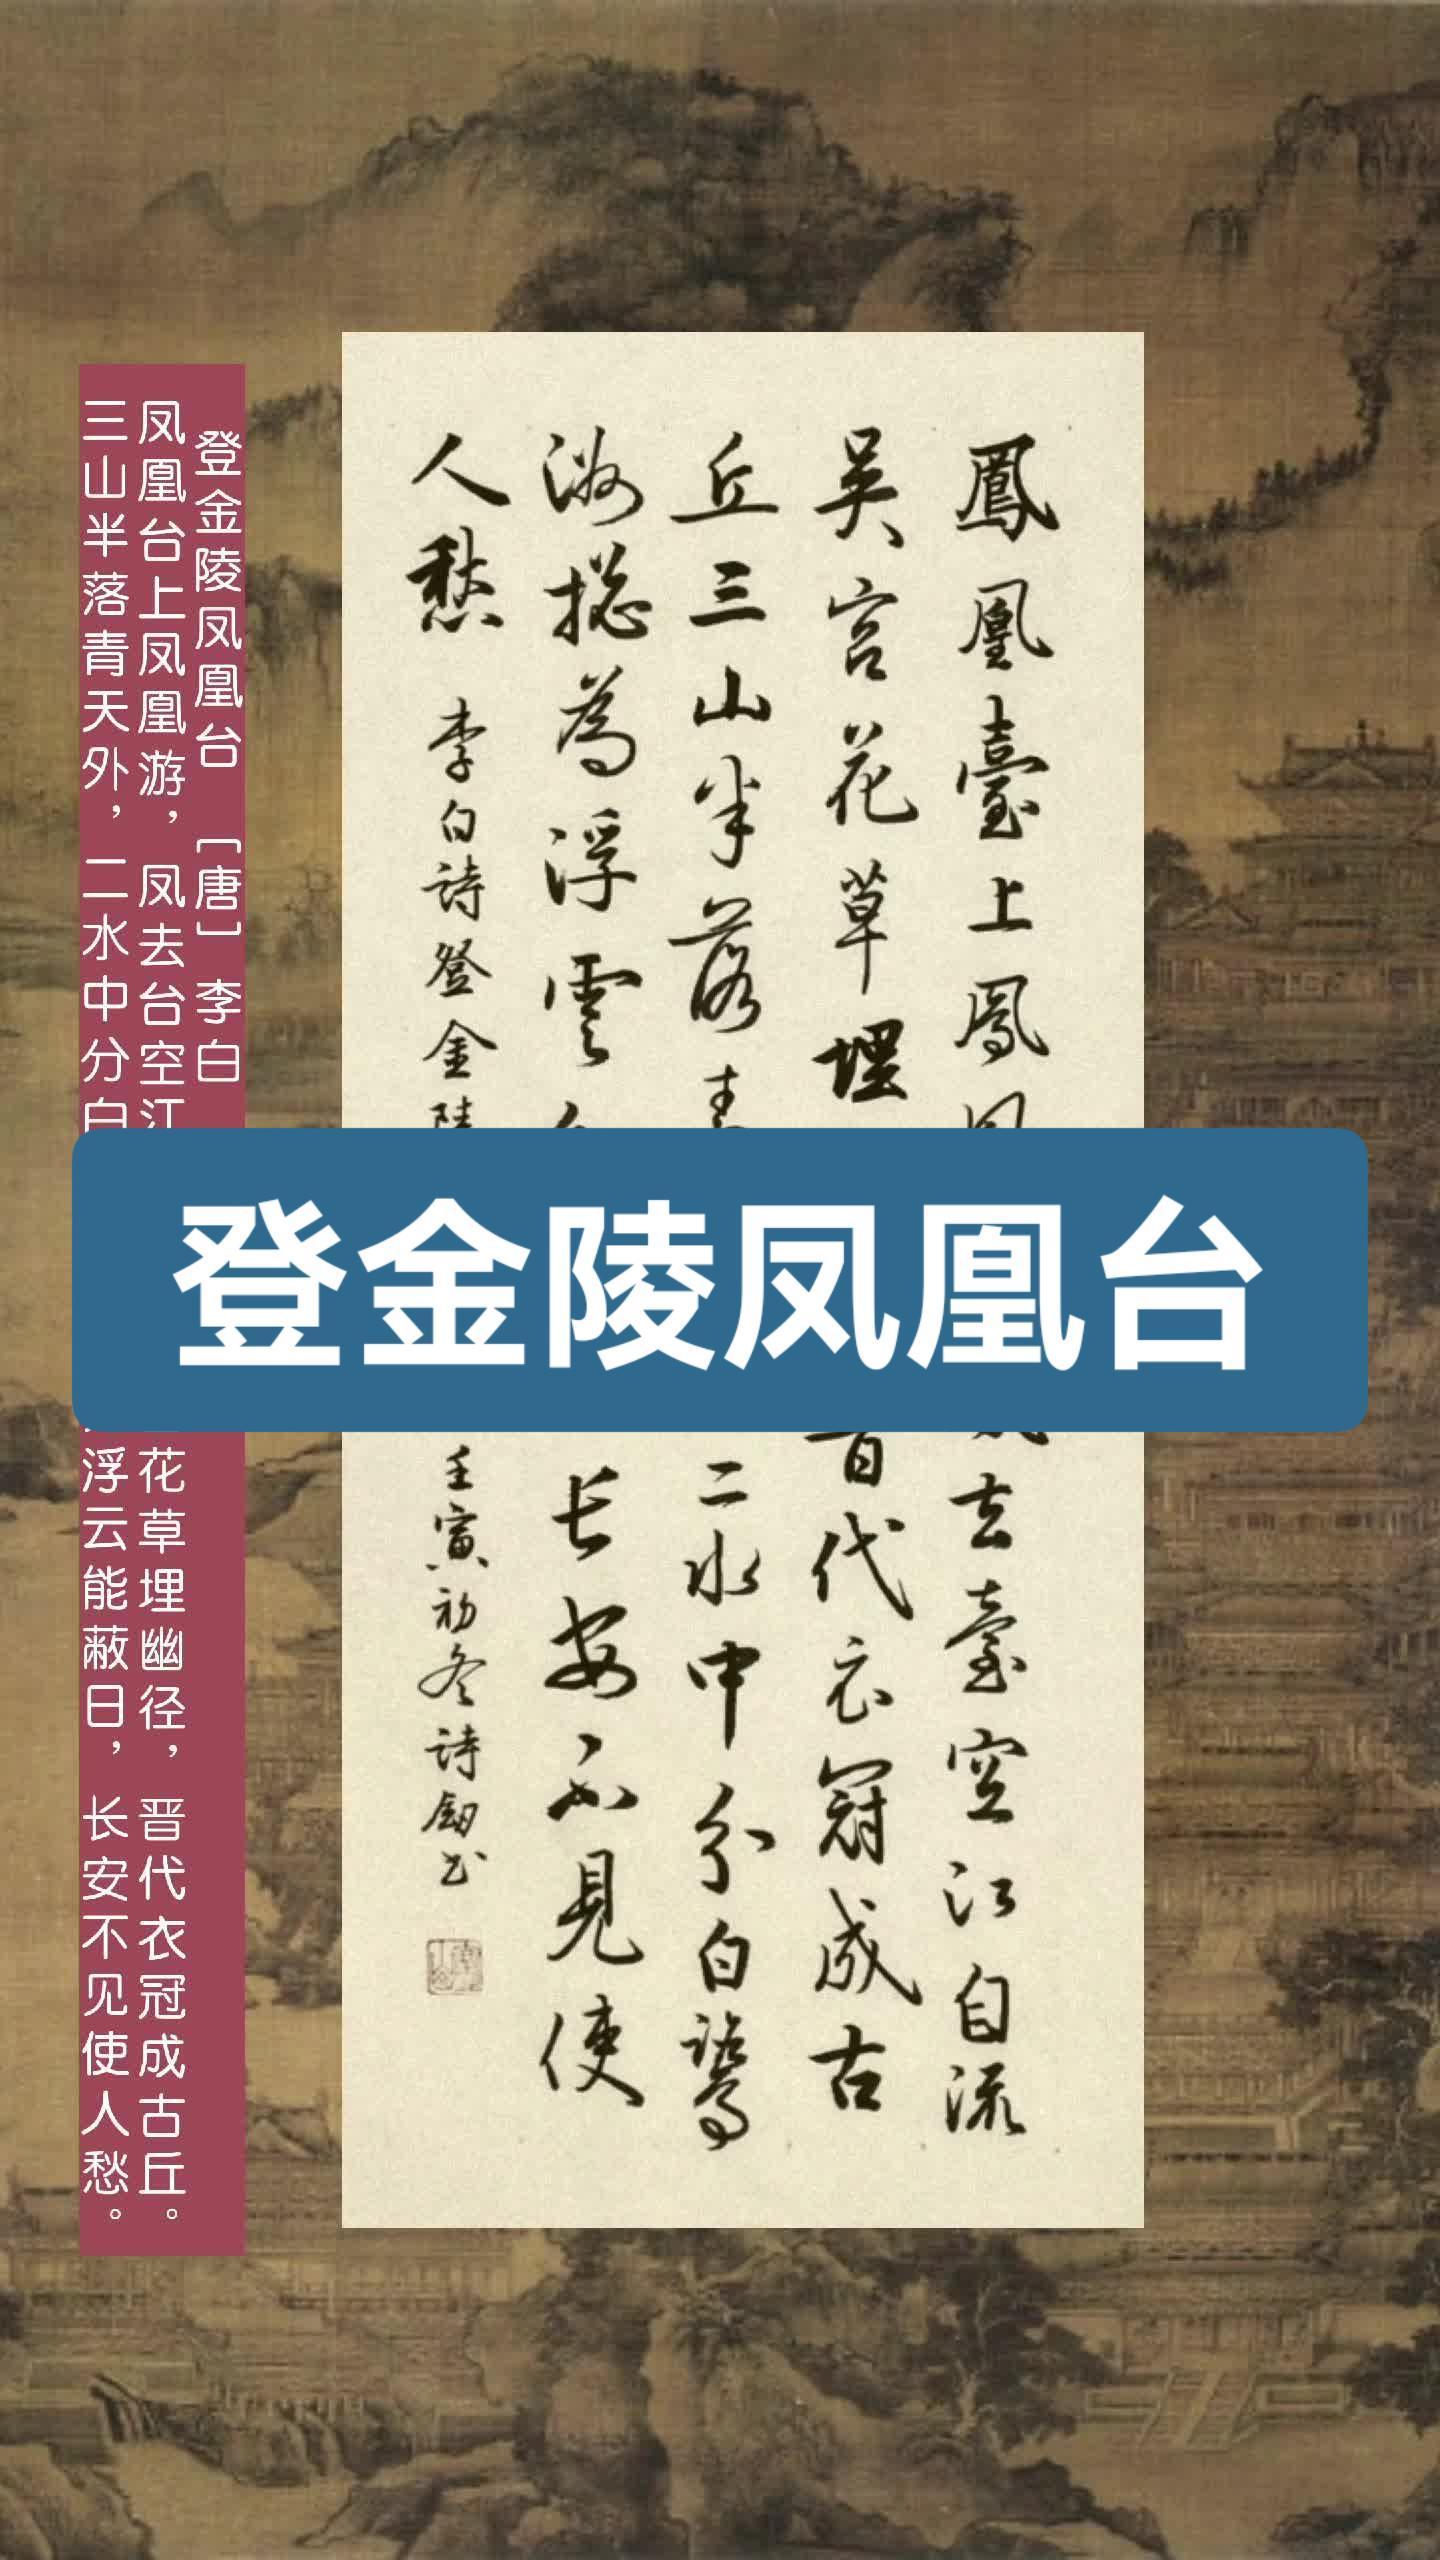 登金陵凤凰台
鳳凰臺上鳳 去臺空江自流
吳宮花草埋 代衣冠成古
丘三山半落青 二水中分白鷺
洲揔為浮雲 长安不見使
人愁 李白詩登金陵 壬寅初冬詩劒书
登金陵凤凰台 [唐] 李白
凤凰台上凤凰游，凤去台空江 花草埋幽径，晋代衣冠成古丘。
三山半落青天外，二水中分白 浮云能蔽日，长安不见使人愁。